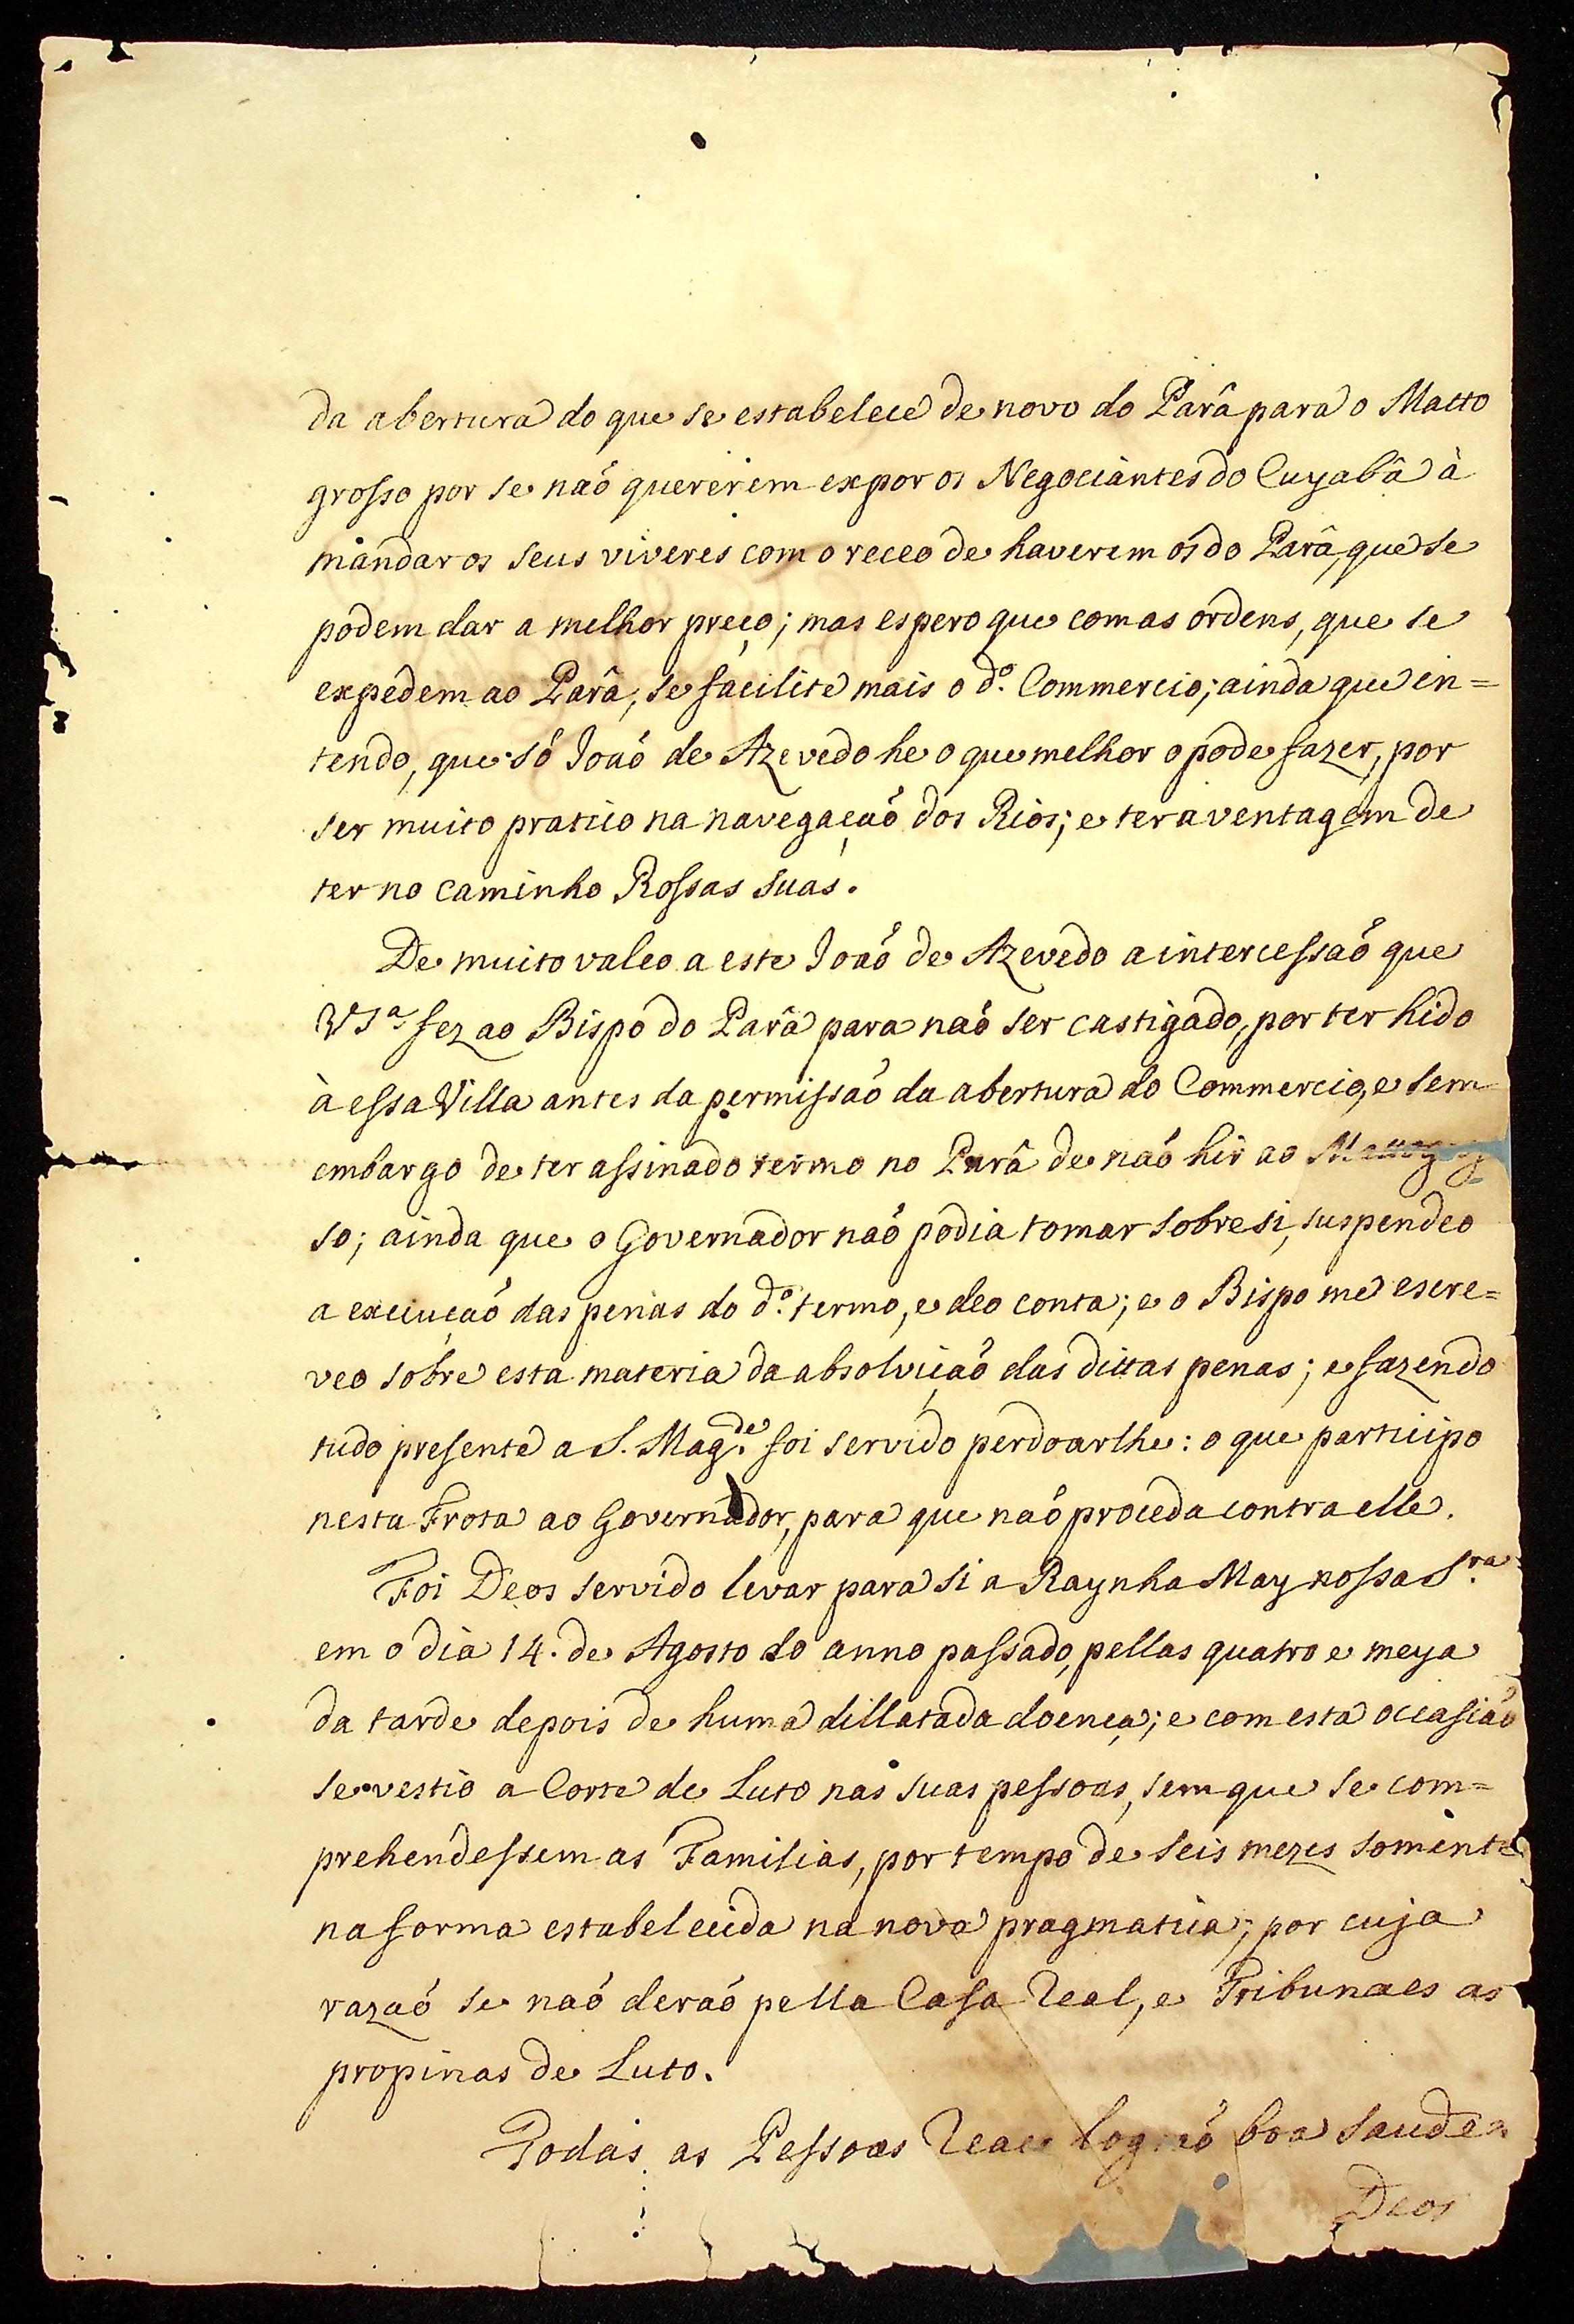 da abertura do que se estabelece de novo do Parâ para o Matto
grosso por se naõ quererem expor os Negociantes do Cuyabâ à
mandar os seus viveres com o receo de haverem os do Parâ, que se
podem dar a melhor preço; mas espero que com as ordens, que se
expedem ao Parâ, se facilite mais o d.º Commercio; ainda que in=
tendo, que só Joaõ de Azevedo he o que melhor o pode fazer, por
ser muito pratico na navegaçaõ dos Rios; e ter a ventagem de
ter no caminho Rossas suas.
De muito valeo a este Joaõ de Azevedo a intercessaõ que
V Sª fez ao Bispo do Parâ para naõ ser castigado, por ter hido
à essa Villa antes da permissaõ da abertura do Commercio, e sem
embargo de ter assinado termo no Parâ de naõ hir ao Mattogros
so; ainda que o Governador naõ podia tomar sobre si, suspendeo
a execuçaõ das penas do d.º termo, e deo conta; e o Bispo me escre=
veo sobre esta materia da absolviçaõ das dittas penas; e fazendo
tudo presente a S. Mag.de foi servido perdoarlhe: o que participo
nesta Frota ao Governador, para que naõ proceda contra elle.
Foi Deos servido levar para si a Raynha May nossa S.ra
em o dia 14. de Agosto do anno passado, pellas quatro e meya
da tarde depois de huma dillatada doença; e com esta occasiaõ
se vestio a Corte de Luto nas suas pessoas, sem que se com=
prehendessem as Familias, por tempo de seis mezes somente
na forma estabelecida na nova pragmatica; por cuja
razaõ se naõ deraõ pella Casa Real, e Tribunaes as
propinas de Luto.
Todas as Pessoas Reaes lograõ boa saude
Deos